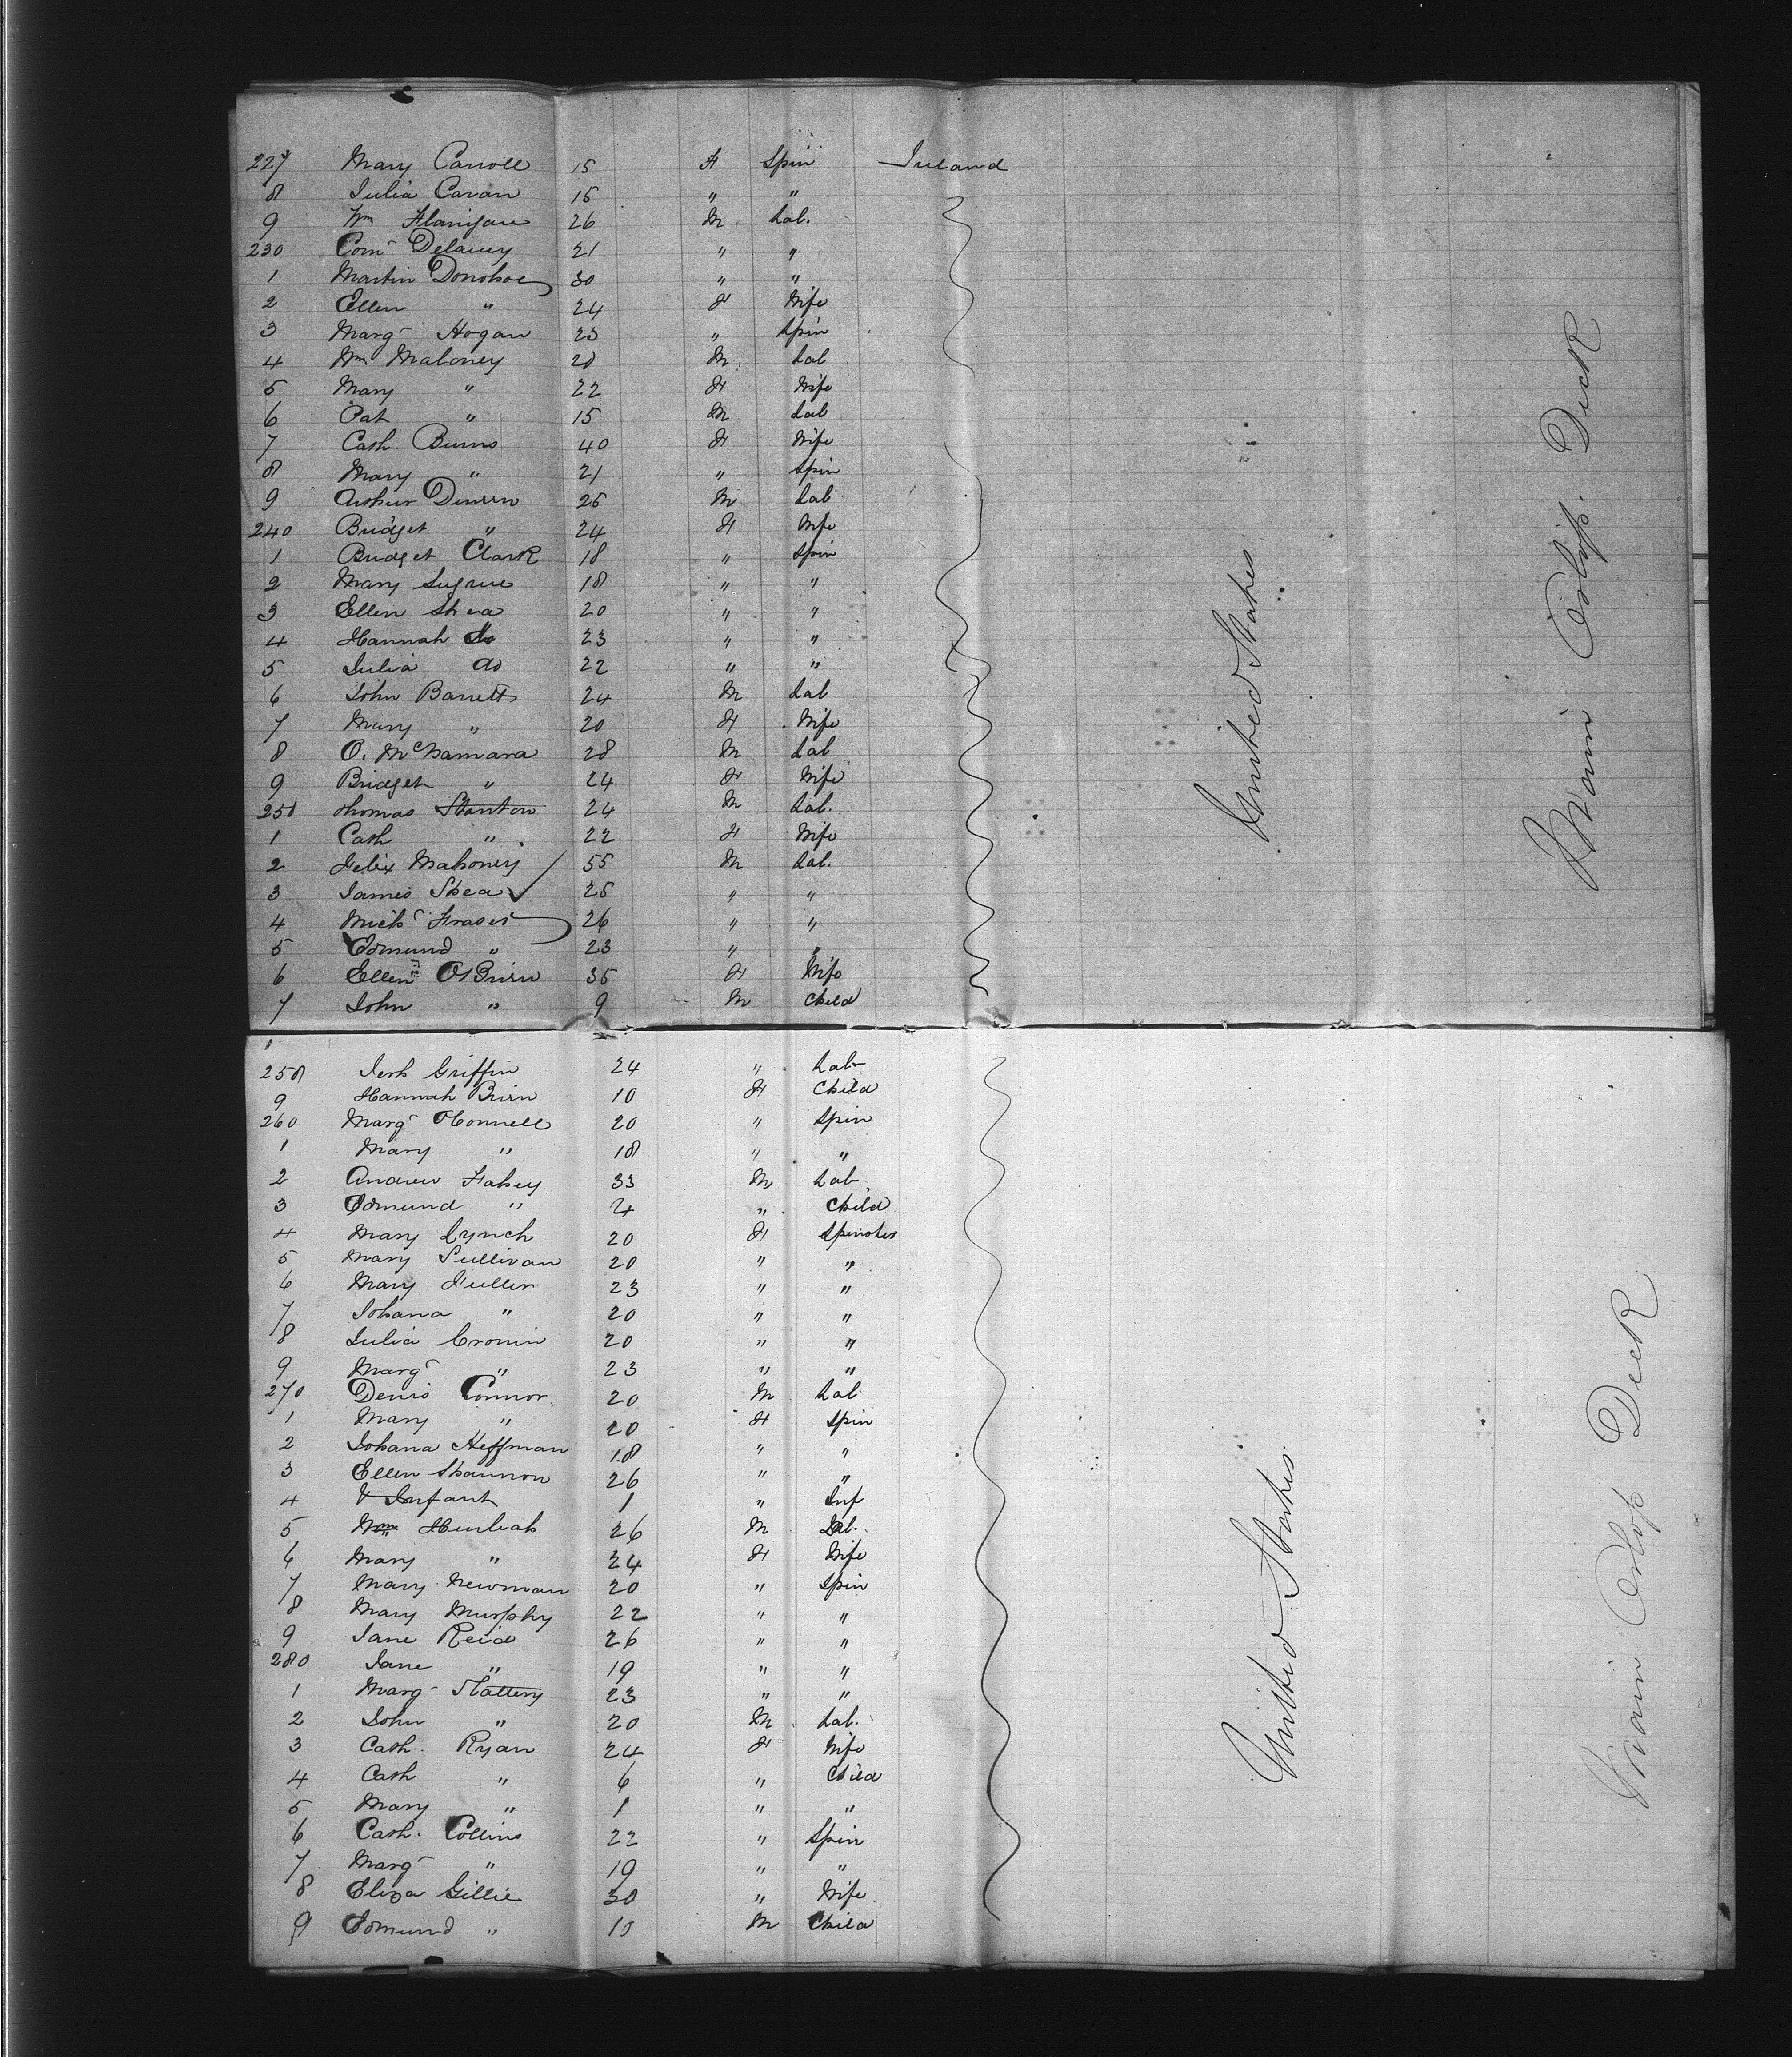 227 Mary Carroll 15 F Spin Ireland
8 Julia Cavan 15 " "
9 Wm Flanigan 26 M Lab.
230 Corn Delaney 21 " "
1 Martin Donohoe 30 " "
2 Ellen " 24 F Wife
3 Marg Hogan 23 " Spin
4 Wm Maloney 28 M Lab
5 Mary " 22 F Wife
6 Pat " 15 M Lab
7 Cath. Burns 40 F Wife
8 Mary " 21 " Spin
9 Arthur 25 M Lab
240 Bridget " 24 F Wife
1 Bridget Clark 18 " Spin
2 Mary Sugrue 18 " "
3 Ellen Shea 20 " "
4 Hannah Do 23 " "
5 Julia do 22 " "
6 John Barrett 24 M Lab
7 Mary " 20 F Wife
8 O. McNamara 28 M Lab
9 Bridget " 24 F Wife
250 Thomas Stanton 24 M Lab.
1 Cath " 22 F Wife
2 Felix Mahoney 55 M Lab.
3 James Shea 25 " "
4 Mich Fraser 26 " "
5 Edmund " 23 " "
6 Ellen OBrien 35 F Wife
7 John " 9 M Child
United States
Main Orlop. Deck
258 Jerh Griffin 24 " Lab
9 Hannah Brien 10 F Child
260 Marg OConnell 20 " Spin
1 Mary " 18 " "
2 Andrew Fahey 33 M Lab
3 Edmund " 4 " Child
4 Mary Lynch 20 F Spinster
5 Mary Sullivan 20 " "
6 Mary Fuller 23 " "
7 Johana " 20 " "
8 Julia Cronin 20 " "
9 Marg " 23 " "
270 Denis Connor 20 M Lab
1 Mary " 20 F Spin
2 Johana Heffman 18 " "
3 Ellen Shannon 26 " "
4 & Infant 1 " Inf
5 Wm Hurleah 26 M Lab.
6 Mary " 24 F Wife
7 Mary Newman 20 " Spin
8 Mary Murphy 22 " "
9 Jane Reid 26 " "
280 Jane " 19 " "
1 Marg Slattery 23 " "
2 John " 20 M Lab.
3 Cath. Ryan 24 F Wife
4 Cath " 6 " Child
5 Mary " 1 " "
6 Cath. Collins 22 " Spin
7 Marg " 19 " "
8 Eliza Gillie 30 " Wife
9 Edmund " 10 M Child
United States
Main Orlop Deck